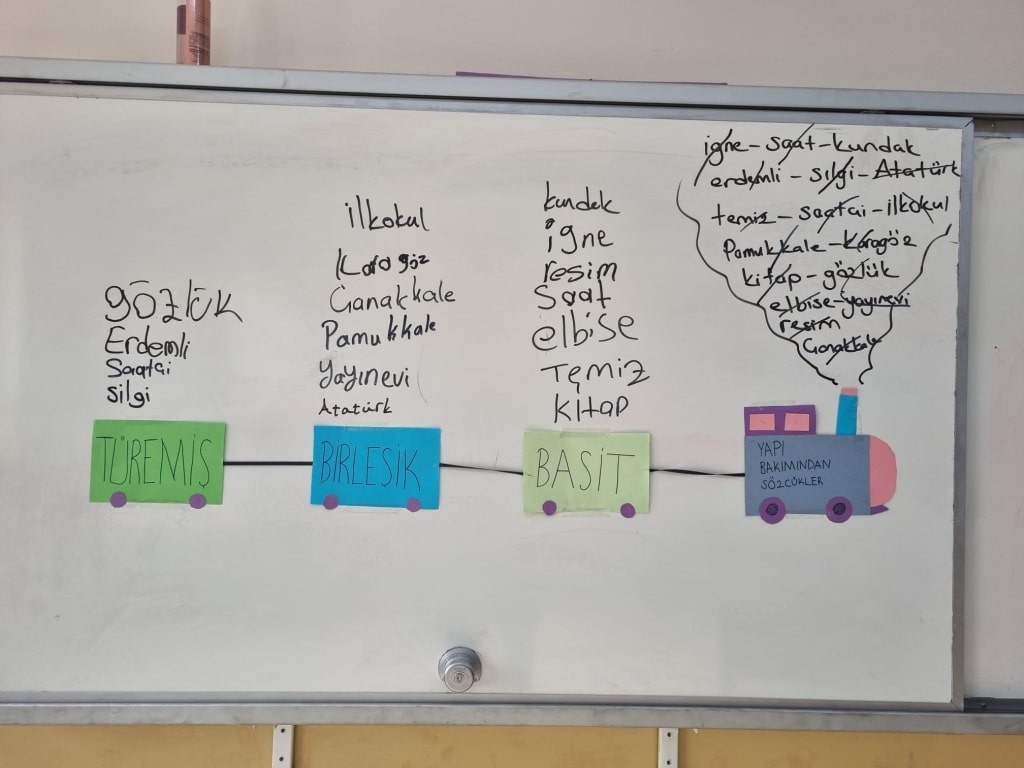 iğne - saat - kundak
erdemli - silgi - Atatürk
temiz - saatçi - ilkokul
Pamukkale - Karagöz
kitap - gözlük
elbise - yayınevi
resim
Çanakkale
gözlük
Erdemli
Saatçi
silgi
TÜREMİŞ
ilkokul
Karagöz
Çanakkale
Pamukkale
Yayınevi
Atatürk
BİRLEŞİK
kundak
iğne
resim
Saat
elbise
Temiz
kitap
BASİT
YAPI
BAKIMINDAN
SÖZCÜKLER